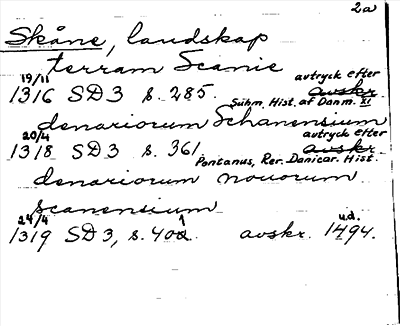 2a
Skåne, landskap
terram Scanie
19/11 avtryck efter
1316 SD 3 s. 285. avskr.
Suhm. Hist. af Danm. XI
denariorum Schanensium
20/4 avtryck efter
1318 SD 3 s. 361 avskr.
Pontanus, Rer. Danicar. Hist.
denariorum nouorum
scanensium
24/4 1 u.d.
1319 SD 3, s. 402. avskr. 1494.